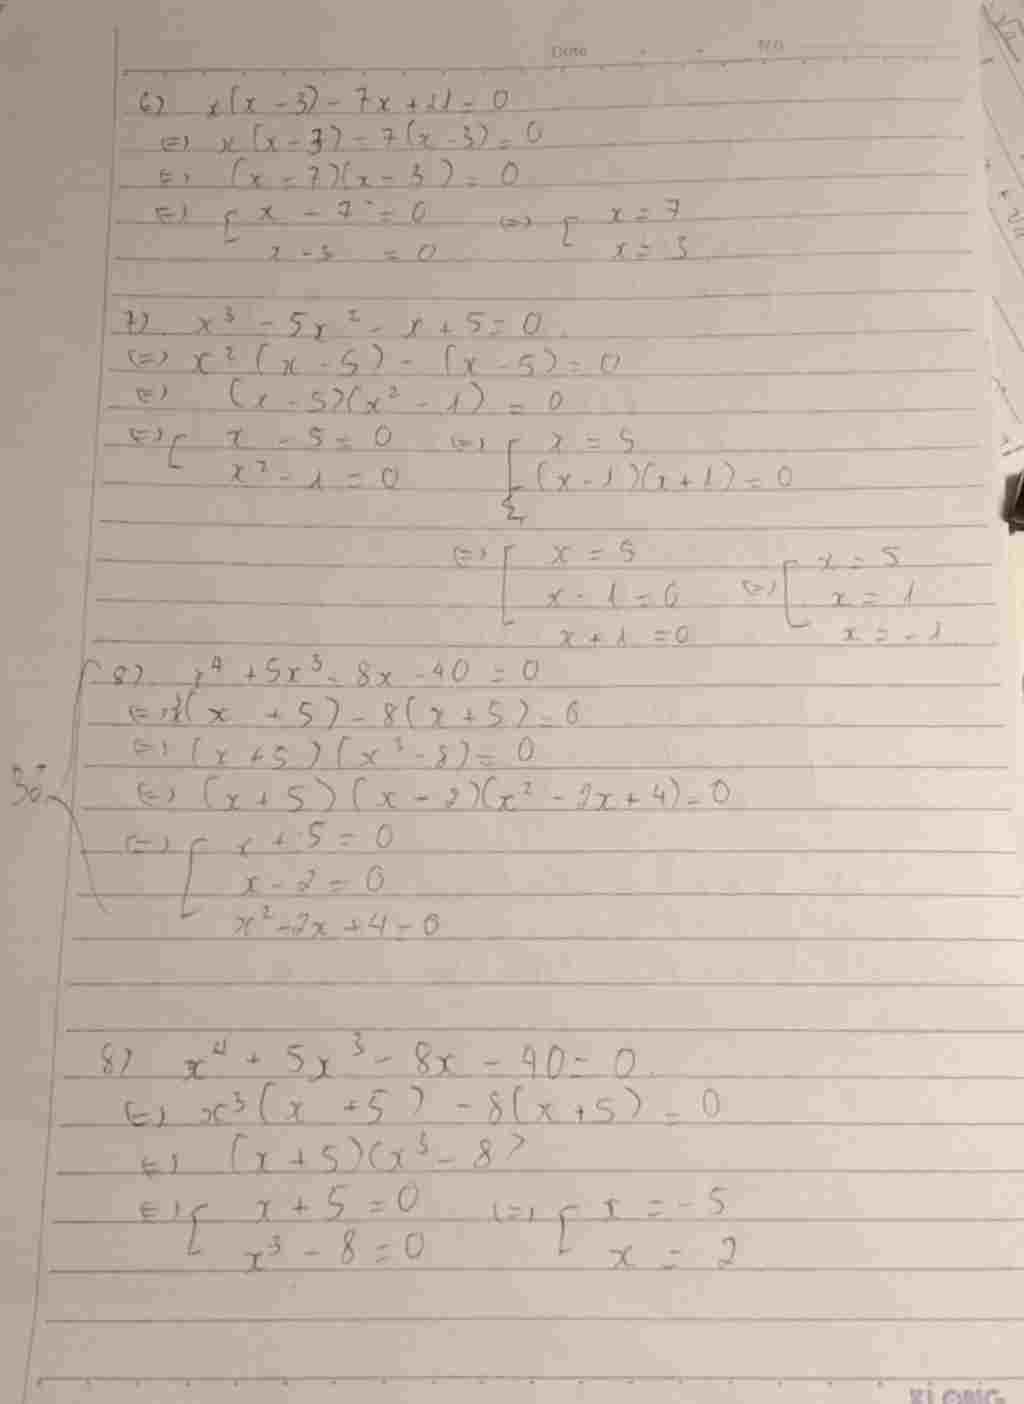 Date No
6) x(x - 3) - 7x + 21 = 0
<=> x(x - 3) - 7(x - 3) = 0
<=> (x - 7)(x - 3) = 0
<=> [ x - 7 = 0 <=> [ x = 7
x - 3 = 0 x = 3
7) x³ - 5x² - x + 5 = 0
<=> x²(x - 5) - (x - 5) = 0
<=> (x - 5)(x² - 1) = 0
<=> [ x - 5 = 0 <=> [ x = 5
x² - 1 = 0 (x - 1)(x + 1) = 0
<=> [ x = 5 <=> [ x = 5
x - 1 = 0 x = 1
x + 1 = 0 x = -1
8) x⁴ + 5x³ - 8x - 40 = 0
<=> x³(x + 5) - 8(x + 5) = 0
<=> (x + 5)(x³ - 8) = 0
<=> (x + 5)(x - 2)(x² - 2x + 4) = 0
<=> [ x + 5 = 0
x - 2 = 0
x² - 2x + 4 = 0
8) x⁴ + 5x³ - 8x - 40 = 0
<=> x³(x + 5) - 8(x + 5) = 0
<=> (x + 5)(x³ - 8)
<=> [ x + 5 = 0 <=> [ x = -5
x³ - 8 = 0 x = 2